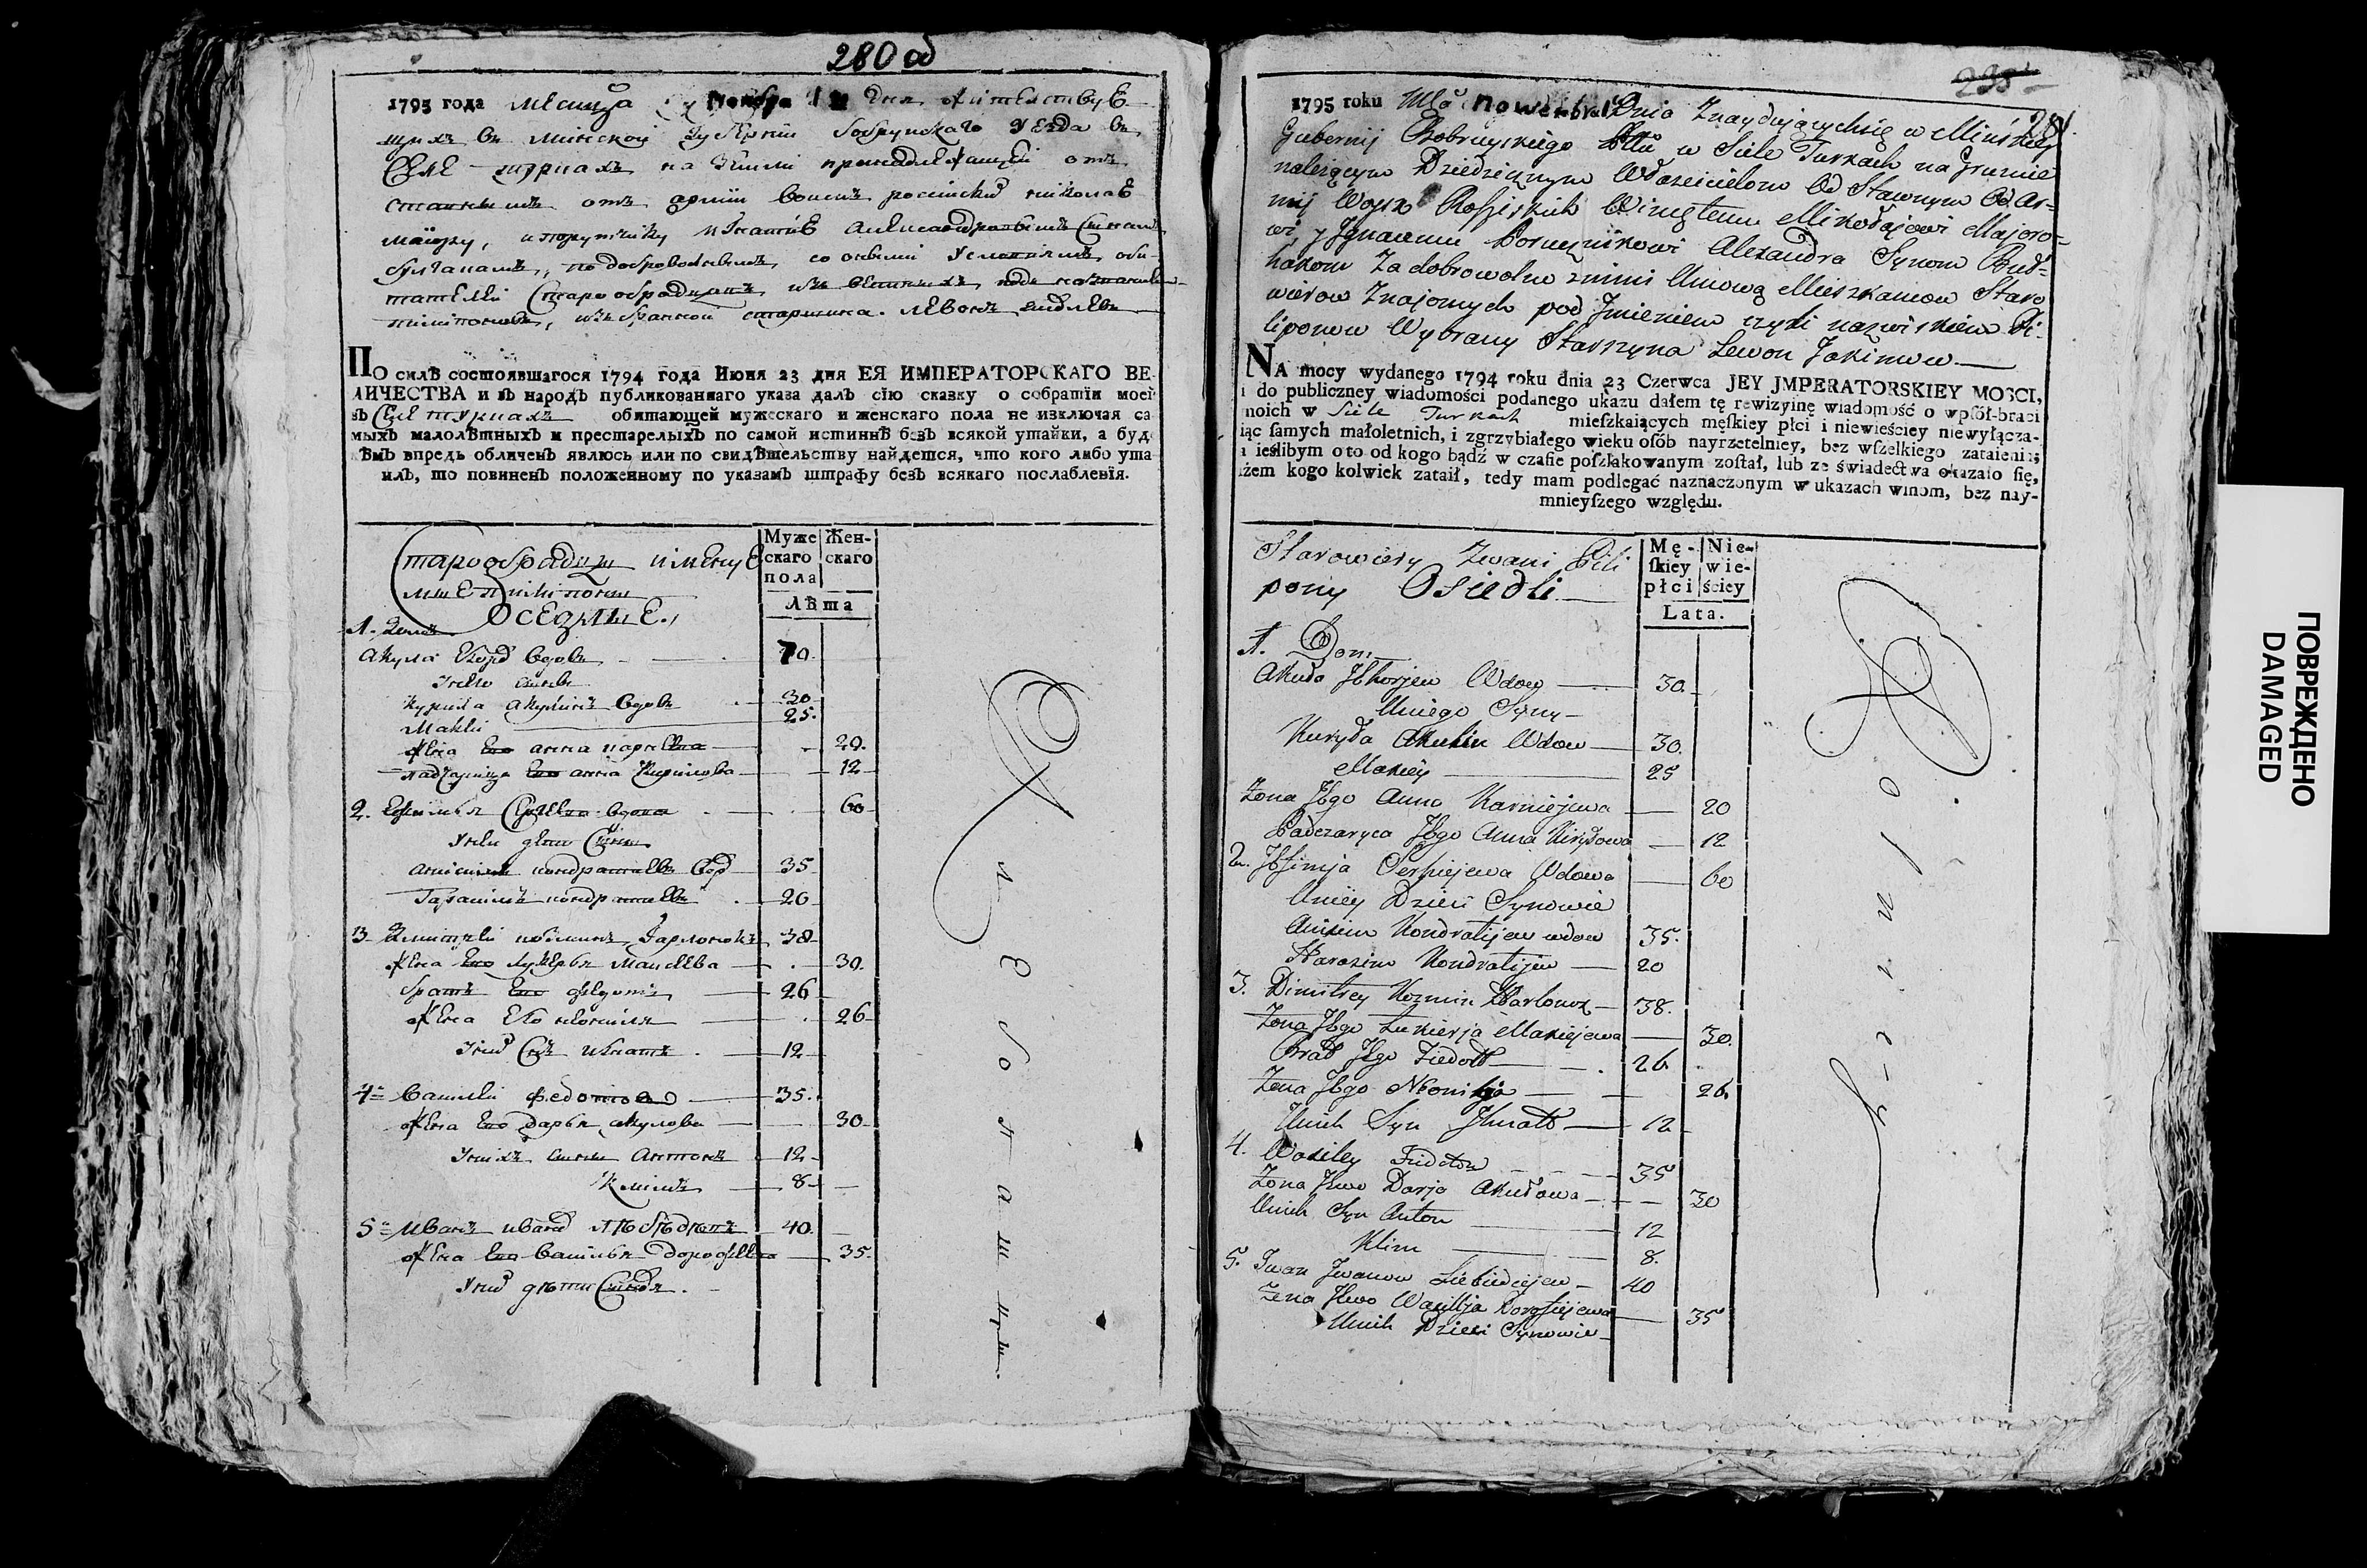 280 об
1795 года месица Ноября дня жителствуе
щихъ въ минской губернии бобруйскаго уезда въ
селе туркахъ на земли принадлежащей отъ
отъ армии воискъ российскихъ николае
маиору, и порутчику игнатие александровымъ
булгакамъ, по добровольнымъ, со оными условиямъ оби-
тателей старообрадцахъ
пилипоновъ, избранной старшина. левонъ
ПО силѣ состоявшагося 1794 года Июня 23 дня ЕЯ ИМПЕРАТОРСКАГО ВЕ
ЛИЧЕСТВА и въ народъ публикованнаго указа далъ сїю сказку о собратїи моей
въ селе туркахъ обитающей мужескаго и женскаго пола не изключая са
мыхъ малолѣтныхъ и престарелыхъ по самой истиннѣ безъ всякой утайки, а буд
кѣмъ впредь обличенъ явлюсь или по свидѣтельству найдется, что кого либо ута
илъ, то повиненъ положенному по указамъ штрафу безъ всякаго послабленїя.
Муже
скаго
пола
Жен-
скаго
Лѣта
Старообрадцы именуе
мые пилипоны
Оседлые.
1. домъ
Акула вдовъ 70.
У него сыны
Курила акулинъ вдовъ 30
Макей 25.
жена его анна карнеева 20.
падчарица его анна Кирилова 12
2. Ефимья Сергеева вдова 60
У неи дети Сыны
анисимъ кондратьевъ вдо 35
Гарасимъ кондратьевъ 20
3 Дмитрей козминъ Гарлонокъ 38
жена его лукерья макеева 30.
братъ его федотъ 26
жена его неониля 26
У них Сынъ игнатъ 12
4 василей федотов 35.
жена его дарья акулова 30
У нихъ сыны Антонъ 12
Климъ 8
5 Иванъ иванов 40.
жена его василья дорофеева 35.
У них дети Сыновя.
281.
1795 roku Mca Nowembra Dnia Znayduiącychsię w Minskiey
Gubernij Bobruyskiego Pttu w Siele Turkach na Gruncie
należącym Dziedzicznym Włascicielom Od Stawnym Od Ar-
mij Woysk Rossyiskich Wincętemu Mikołajowi Majoro-
wi y Jgnacemu Porucznikowi Alexandra Synom Buł-
hakom Za dobrowolną znimi Umową Mieszkancow Staro
wierow Znajomych pod Jmieniem czyli nazwiskiem Pi-
liponow Wybrany Starszyna Lewon Jakimow
NA mocy wydanego 1794 roku dnia 23 Czerwca JEY JMPERATORSKIEY MOSCI,
i do publiczney wiadomości podanego ukazu dałem tę rewizyinę wiadomość o wpſół-braci
moich w Siele Turkach mieszkaiących męſkiey płci i niewieściey niewyłącza-
iąc ſamych małoletnich, i zgrzybiałego wieku osób nayrzetelniey, bez wſzelkiego zataienia;
a ieślibym o to od kogo bądź w czaſie poſzlakowanym zoſtał, lub ze świadectwa okazało ſię,
iżem kogo kolwiek zataił, tedy mam podlegać naznaczonym w ukazach winom, bez nay-
mnieyſzego względu.
Mę-
ſkiey
płci
Nie-
wie-
ściey
Lata.
Starowiery Zwani Pili
pony Osiedli
1. Dom
Akuła Jhorjew Wdow 30.
Uniego Syny
Kuryła Akulin Wdow 30.
Makiey 25
Żona Jego Anna Karniejewa 20
Padczaryca Jego Anna Kiryłowa 12
2. Jefimja Serhiejewa Wdowa 60
Uniey Dzieci Synowie
Anisim Kondratijew wdow 35.
Harasim Kondratijew 20
3. Dimitrey Kozmin Harlonok 38.
Żona Jego Łukierja Makiejewa 30.
Brat Jego Fiedott 26.
Żona Jego Nieonilja 26.
Unich Syn Jhnatt 12
4. Wasiley Fiedotow 35
Żona Jewo Darja Akułowa 30
Unich Syn Anton 12
Klim 8.
5. Jwan Jwanow Liebiedziejew 40
Żena Jewo Wasillja Dorofiejewa 35
Unich Dzieci Synowie
ПОВРЕЖДЕНО
DAMAGED